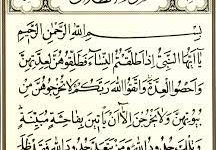 بِسْمِ اللَّهِ الرَّحْمَٰنِ الرَّحِيمِ
يَا أَيُّهَا النَّبِيُّ إِذَا طَلَّقْتُمُ النِّسَاءَ فَطَلِّقُوهُنَّ لِعِدَّتِهِنَّ
وَأَحْصُوا الْعِدَّةَ وَاتَّقُوا اللَّهَ رَبَّكُمْ لَا تُخْرِجُوهُنَّ مِنْ
بُيُوتِهِنَّ وَلَا يَخْرُجْنَ إِلَّا أَنْ يَأْتِينَ بِفَاحِشَةٍ مُبَيِّنَةٍ
وَتِلْكَ حُدُودُ اللَّهِ وَمَنْ يَتَعَدَّ حُدُودَ اللَّهِ فَقَدْ ظَلَمَ